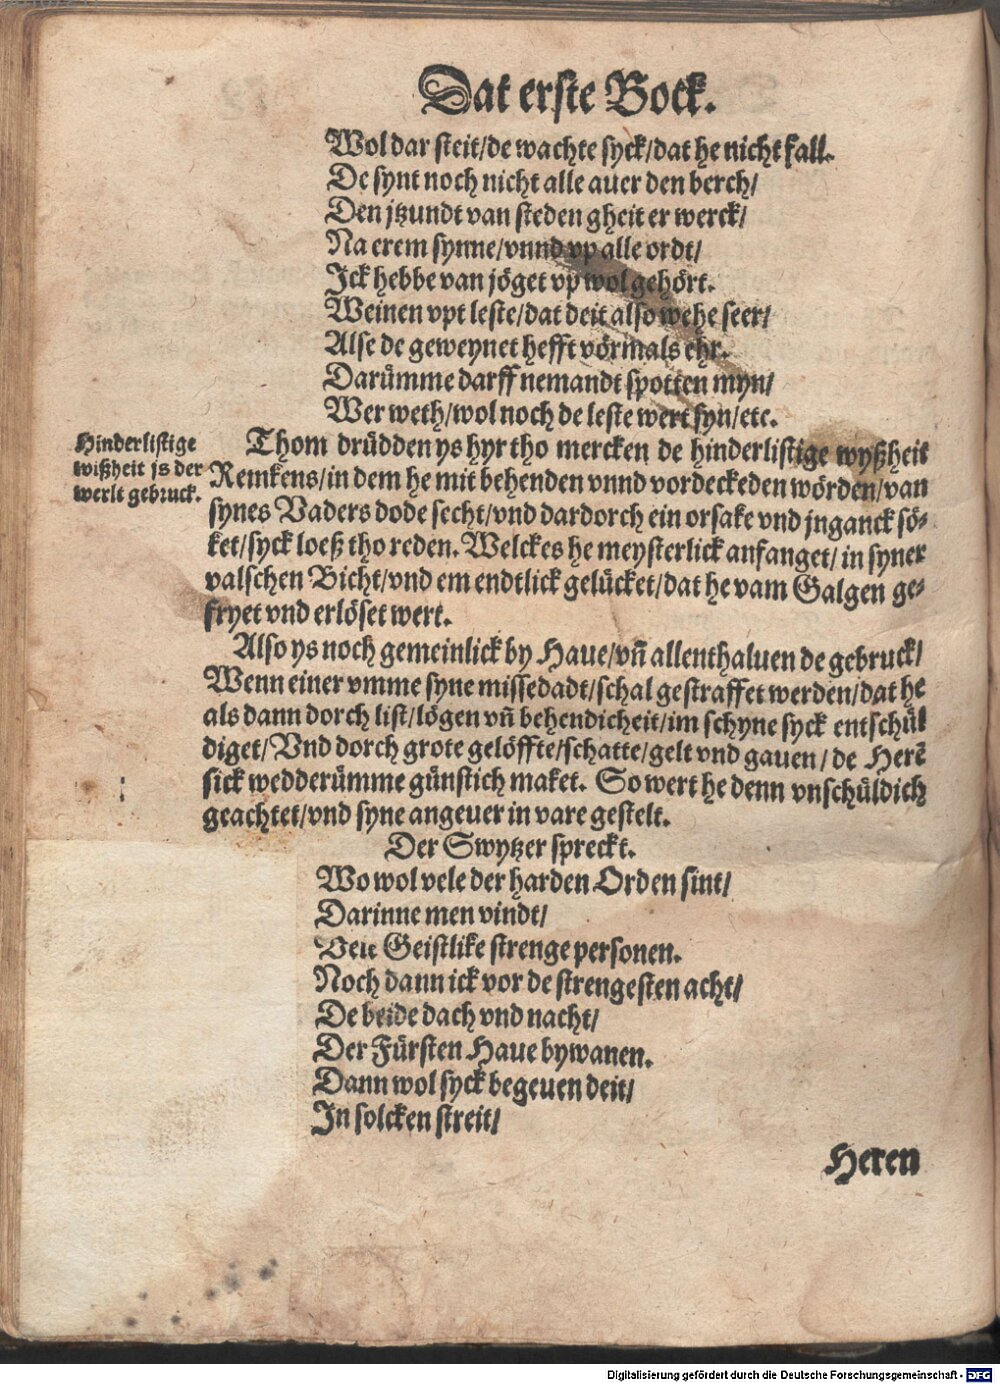 Dat erste Boek.
Wol dar steit/de wachte syck/dat he nicht fall.
De synt noch nicht alle auer den berch/
Den jtzundt van steden gheit er werck/
Na erem synne/vnnd vp alle ordt/
Ick hebbe van jöget vp wol gehört.
Weinen vpt leste/dat deit also wehe seer/
Alse de geweynet hefft vörmals ehr.
Darümme darff nemandt spotten myn/
Wer weth/wol noch de leste wert syn/etc.
Hinderlistige
wißheit js der
werlt gebruck.
Thom drüdden ys hyr tho mercken de hinderlistige wyßheit
Reinkens/in dem he mit behenden vnnd vordeckeden wörden/van
synes Vaders dode secht/vnd dardorch ein orsake vnd jnganck sö-
ket/syck loeß tho reden. Welckes he meysterlick anfanget/in syner
valschen Bicht/vnd em endtlick gelücket/dat he vam Galgen ge-
fryet vnd erlöset wert.
Also ys noch gemeinlick by Haue/vn̄ allenthaluen de gebruck/
Wenn einer vmme syne missedadt/schal gestraffet werden/dat he
als dann dorch list/lögen vn̄ behendicheit/im schyne syck entschül
diget/Vnd dorch grote gelöffte/schatte/gelt vnd gauen/de Herē
sick wedderümme günstich maket. So wert he denn vnschüldich
geachtet/vnd syne angeuer in vare gestelt.
Der Swytzer spreckt.
Wo wol vele der harden Orden sint/
Darinne men vindt/
Geistlike strenge personen.
Noch dann ick vor de strengesten acht/
De beide dach vnd nacht/
Der Fürsten Haue bywanen.
Dann wol syck begeuen deit/
In solcken streit/
Heren
Digitalisierung gefördert durch die Deutsche Forschungsgemeinschaft - DFG